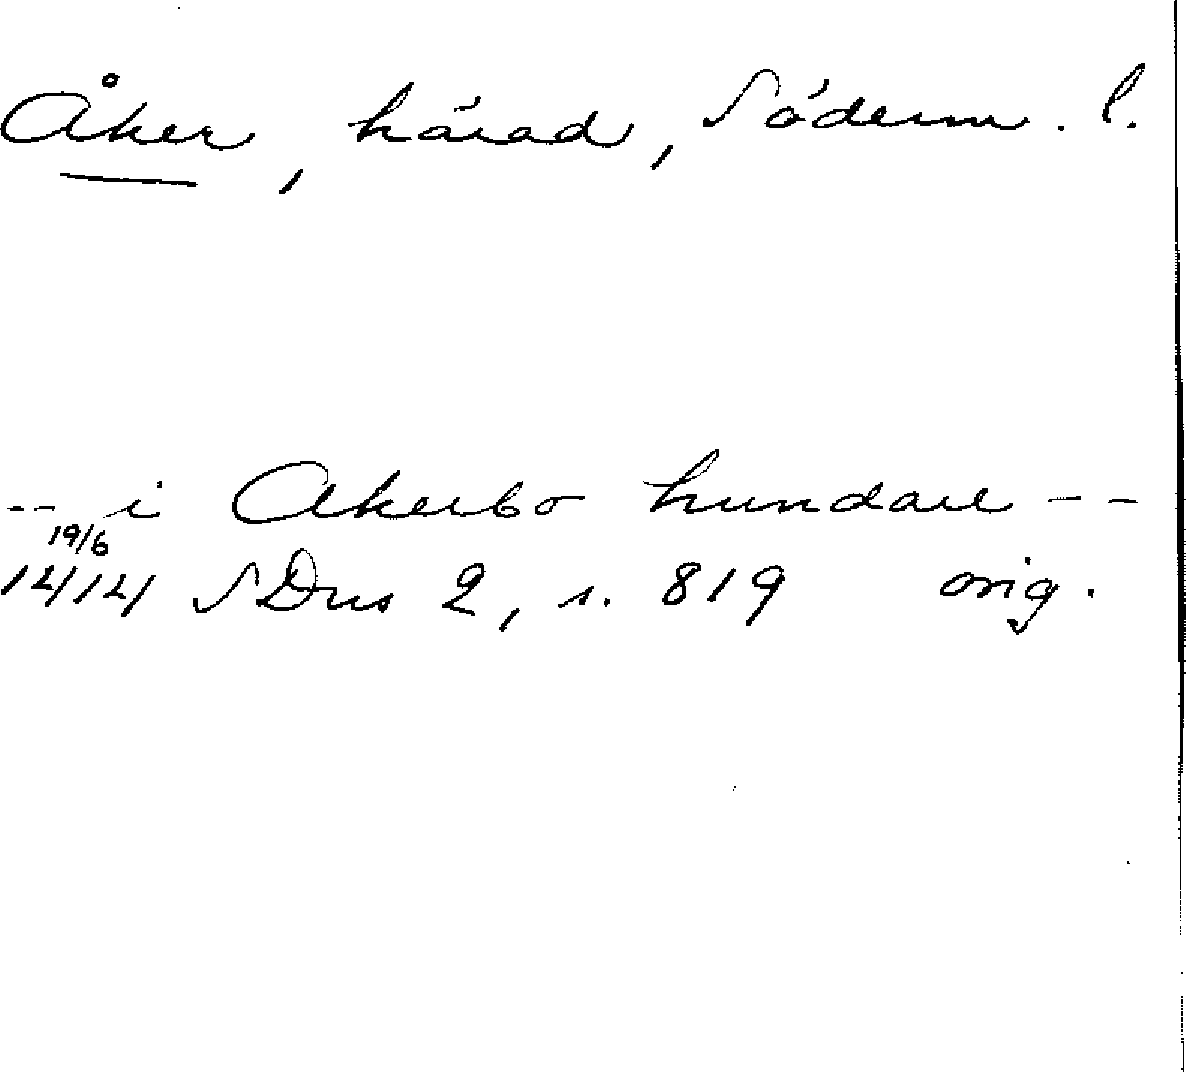 Åker, härad, Söderm. l.
-- i Akerbo hundare --
19/6
1414 SDns 2, s. 819 orig.